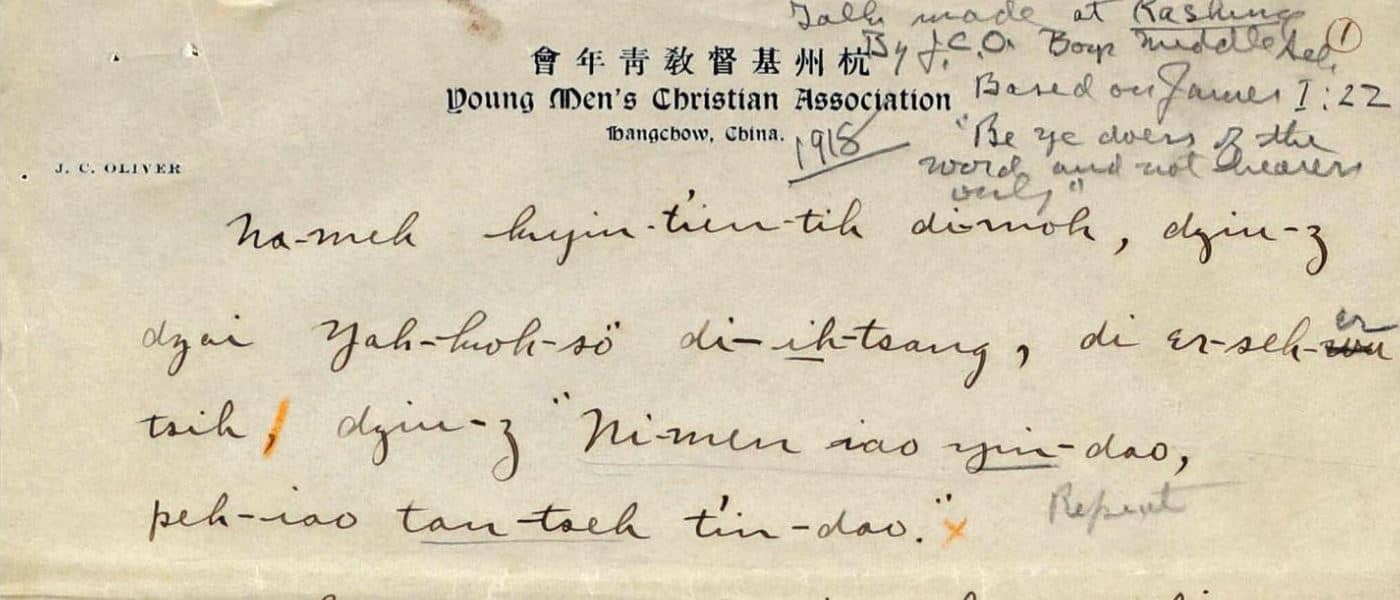 Talk made at Kashing
By J.C.O. Boys Middle Sch.
①
Based on James I:22
"Be ye doers of the
word and not hearers
only"
杭州基督敎靑年會
Young Men's Christian Association
Hangchow, China.
1918
J. C. OLIVER
Na-meh kyin-t'ien-tih di-moh, dziu-z
dzai Yah-koh-sö di-ih-tsang, di er-seh-er
tsih, dziu-z "Ni-men iao yin-dao,
peh-iao tan-tseh t'in-dao." x Repeat